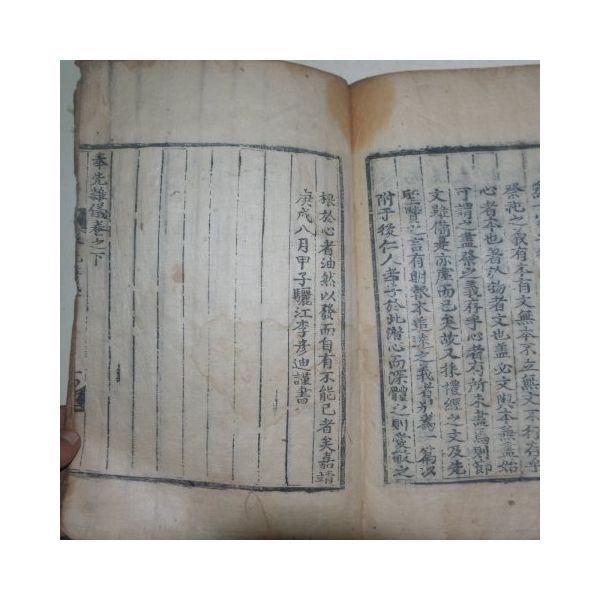 祭祀之義有本有文無本不立無文不行存乎
心者本也著於物者文也盖必文與本無盡始
可謂之盡祭之義存乎心者有所未盡焉則節
文雖備是亦虛而已矣故又採禮經之文及先
聖賢之言有明報本追遠之義者別為一篇以
附于後仁人孝子於此潛心而深體之則愛敬之
根於心者油然以發而自有不能已者矣嘉靖
庚戌八月甲子驪江李彦迪謹書
奉先雜儀卷之下